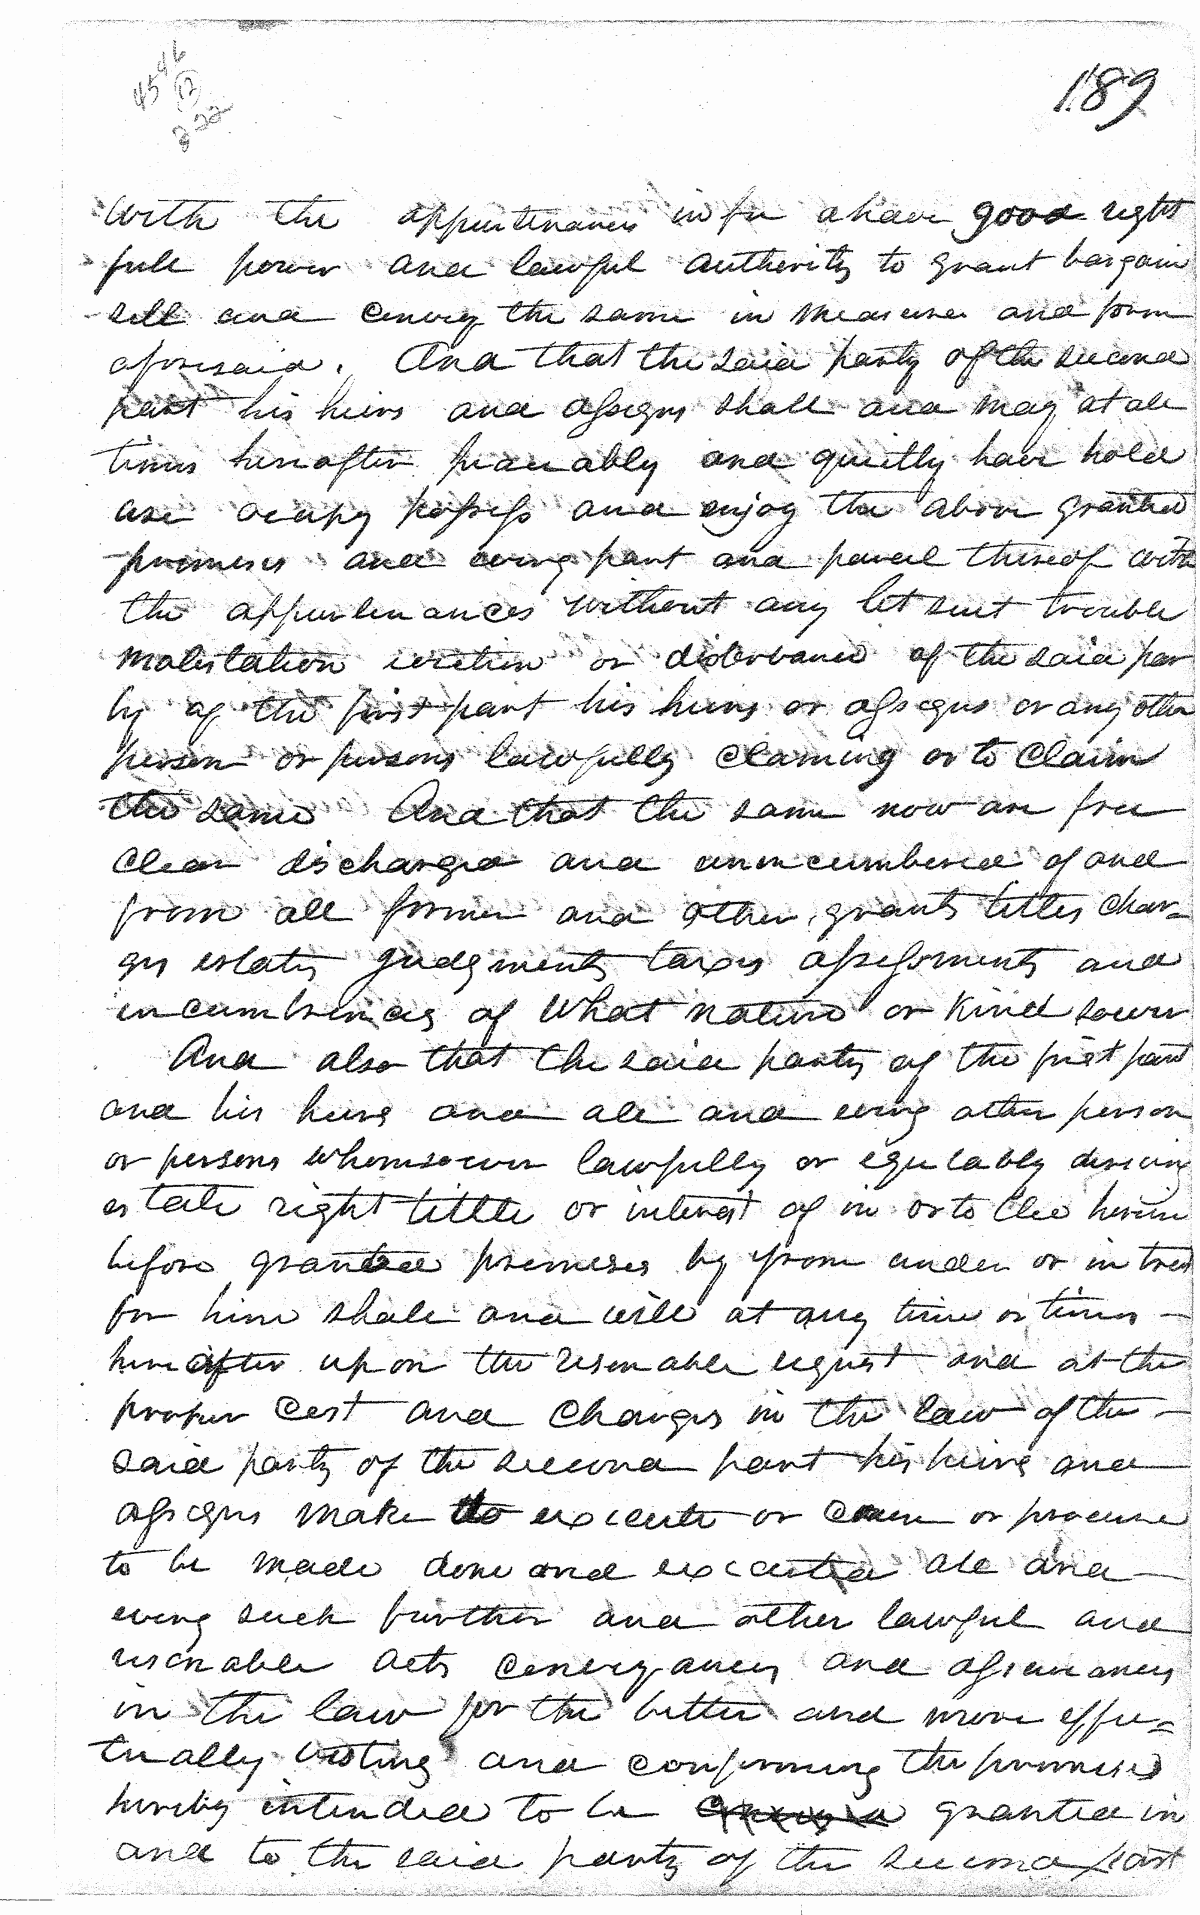 4596
(12)
222
189
With the appurtenances in fee & have good right
full power and lawful authority to grant bargain
sell and convey the same in measure and form
aforesaid. And that the said party of the second
part his heirs and assigns shall and may at all
times hereafter peaceably and quietly have hold
use occupy possess and enjoy the above granted
premises and every part and parcel thereof with
the appurtenances without any let suit trouble
molestation eviction or disterbance of the said par
ty of the first part his heirs or assigns or any other
person or persons lawfully claming or to claim
the same And that the same now are free
clear discharged and unincumbered of and
from all former and other grants titles char-
ges estates judgments taxes assessments and
incumbrances of what nature or kind soever
And also that the said party of the first part
and his heirs and all and every other person
or persons whomsoever lawfully or equitably deriving
estate right tittle or interest of in or to the herein
before granted premises by from under or in trust
for him shall and will at any time or times —
hereafter upon the resonable request and at the
proper cost and charges in the law of the —
said party of the second part his heirs and
assigns make do execute or cause or procure
to be made done and executed all and —
every such further and other lawful and
resonable acts conveyances and assurances
in the law for the better and more effec=
tually vesting and confirming the premises
hereby intended to be granted in
and to the said party of the second part